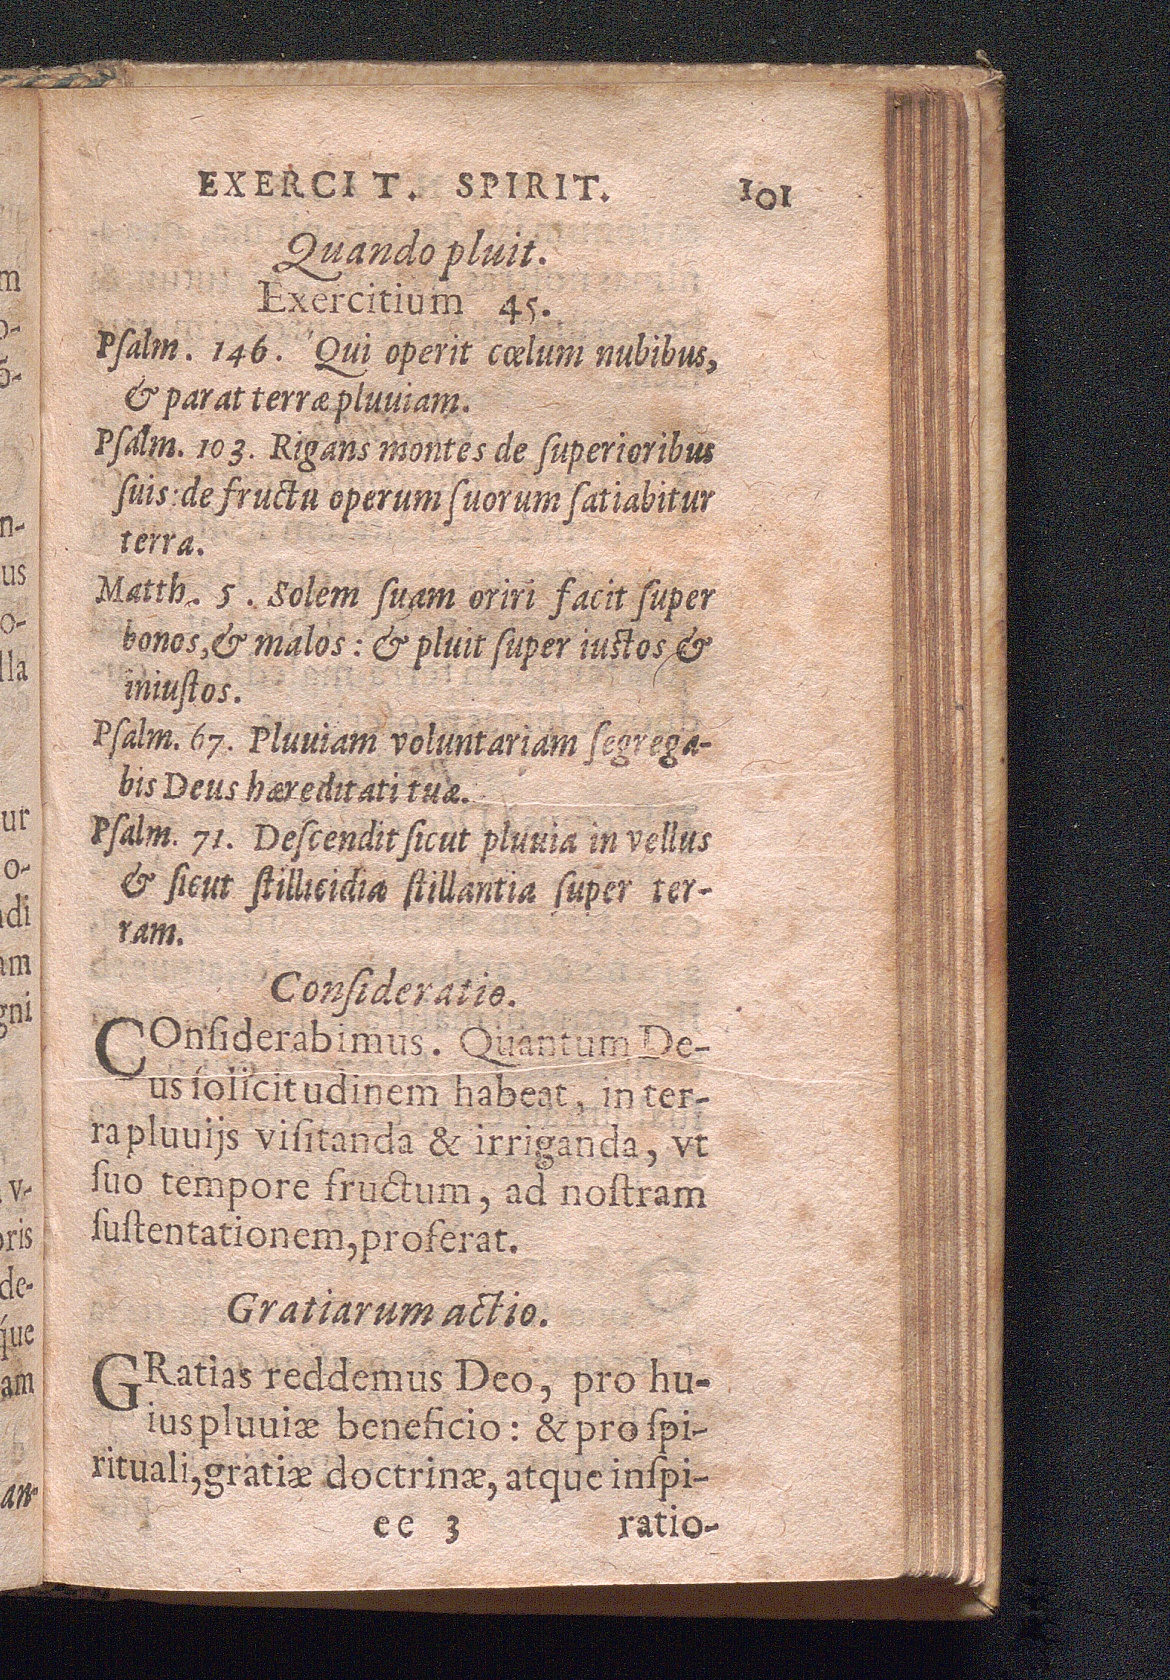 EXERCIT. SPIRIT. 101
Quando pluit.
Exercitium 45.
Pſalm. 146. Qui operit cœlum nubibus,
& parat terræ pluuiam.
Pſalm. 103. Rigans montes de ſuperioribus
ſuis: de fructu operum ſuorum ſatiabitur
terra.
Matth. 5. Solem ſuam oriri facit ſuper
bonos, & malos: & pluit ſuper iuſtos &
iniuſtos.
Pſalm. 67. Pluuiam voluntariam ſegrega-
bis Deus hæreditati tuæ.
Pſalm. 71. Deſcendit ſicut pluuia in vellus
& ſicut ſtillicidia ſtillantia ſuper ter-
ram.
Conſideratio.
COnſiderabimus. Quantum De-
us ſolicitudinem habeat, in ter-
ra pluuijs viſitanda & irriganda, vt
ſuo tempore fructum, ad noſtram
ſuſtentationem, proferat.
Gratiarum actio.
GRatias reddemus Deo, pro hu-
ius pluuiæ beneficio: & pro ſpi-
rituali, gratiæ doctrinæ, atque inſpi-
ee 3 ratio-